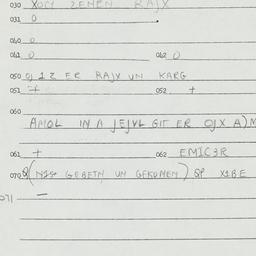 030 XOCY ZEMEN RAJX
031 0
040 0
041 0 042 0
050 OJ 1Z ER RAJX UN KARG
051 + 052 +
060
AMOL IN A JEJVL GIT ER OJX A)M
061 + 062 EMIC3R
070 (N14 GEBETN UN GEKUMEN) QP X1BE
071 —